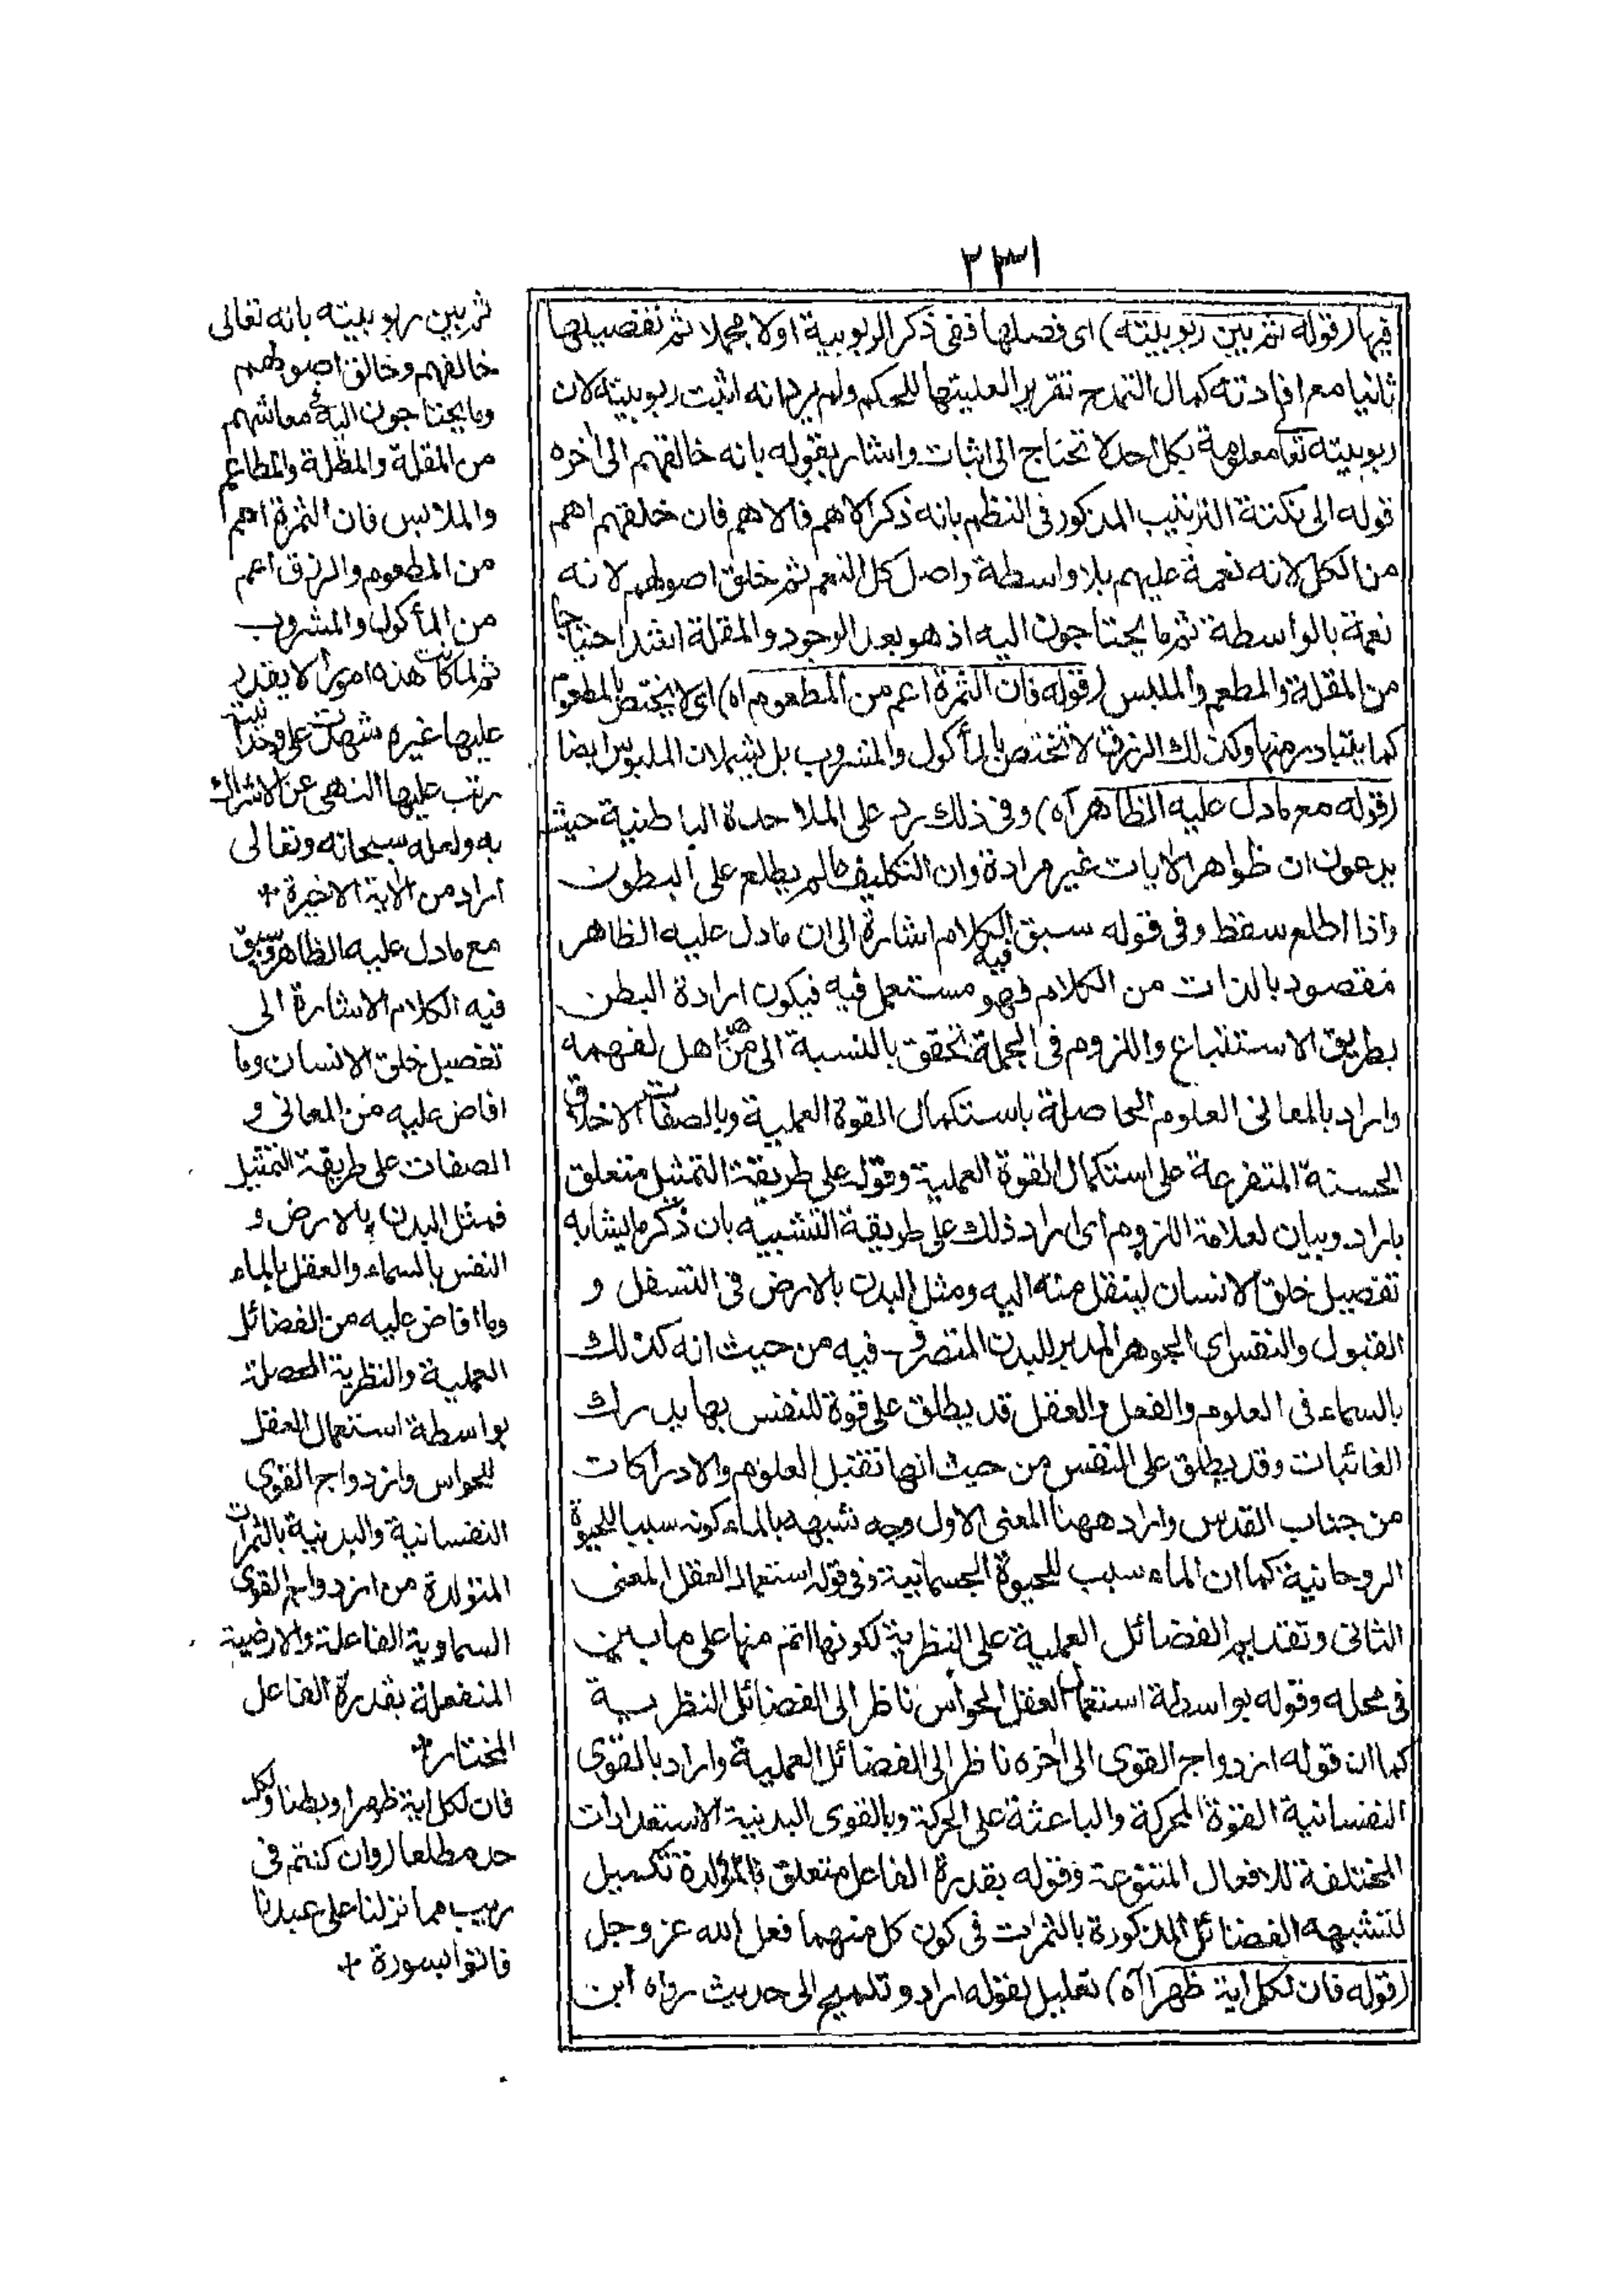 ٢٣١
فيها (قوله ثم بين ربوبيته) اى فصلها ففى ذكر الربوبية اولا مجملا ثم تفصيلها
ثانيا مع افادته كمال التمدح تقرير العليتها للحكم ولم يرد انه اثبت ربوبيته لان
ربوبيته تعا معلومة بكل احد لا تحتاج الى اثبات واشار بقوله بانه خالقهم الى أخره
قوله الى نكتة الترتيب المذكور فى النظم بانه ذكر الاهم فالاهم فان خلقهم اهم
من الكل لانه نعمة عليهم بلا واسطة واصل كل النعم ثم خلق اصولهم لانه
نعمة بالواسطة ثم ما يحتاجون اليه اذ هو بعد الوجود والمقلة اشد احتياجا
من المقلة والمطعم والملبس (قوله فان الثمرة اعم من المطعوم اه) اى لا يختص بالمطعوم
كما يتبادر منها وكذلك الرزق لا تختص بالمأكول والمشروب بل يشملان الملبوس ايضا
(قوله مع مادل عليه الظاهر آه) وفى ذلك رد على الملاحدة الباطنية حيث
يدعون ان ظواهر الايات غير مرادة وان التكليف مالم يطلع على البطون
واذا اطلع سقط وفى قوله سبق فيه الكلام اشارة الى ان مادل عليه الظاهر
مقصود بالذات من الكلام فهو مستعمل فيه فيكون ارادة البطن
بطريق الاستتباع واللزوم فى الجملة تحقق بالنسبة الى من هو اهل لفهمه
واراد بالمعانى العلوم الحاصلة باستكمال القوة العملية وبالصفات الاخلاق
الحسنة المتفرعة على استكمال القوة العملية وقوله على طريقة التمثيل متعلق
باراد وبيان لعلاقة اللزوم اى اراد ذلك على طريقة التشبيه بان ذكر ما يشابه
تفصيل خلق الانسان لينتقل منه اليه ومثل البدن بالارض فى التسفل و
القبول والنفس اى الجوهر المدبر للبدن المتصرف فيه من حيث انه كذلك
بالسماء فى العلوم والفعل والعقل قد يطلق على قوة للنفس بها يدرك
الغائبات وقد يطلق على النفس من حيث انها تقبل العلوم والادراكات
من جناب القدس واراد ههنا المعنى الاول وجه شبهه بالماء كونه سببا للحيوة
الروحانية كما ان الماء سبب للحيوة الجسمانية وفى قوله استعمال العقل المعنى
الثانى وتقديم الفضائل العملية على النظرية لكونها اتم منها على ما بين
فى محله وقوله بواسطة استعمال العقل الحواس ناظر الى الفضائل النظرية
كما ان قوله ازدواج القوى الى أخره ناظر الى الفضائل العملية واراد بالقوى
النفسانية القوة المحركة والباعثة على الحركة وبالقوى البدنية الاستعدادات
المختلفة للافعال المتنوعة وقوله بقدرة الفاعل متعلق بالمتولدة تكميل
لتشبه الفضائل المذكورة بالثمرات فى كون كل منهما فعل الله عز وجل
(قوله فان لكل اية ظهرا آه) تعليل لقوله اراد وتلميح الى حديث رواه ابن
ثم بين ربوبيته بانه تعالى
خالقهم وخالق اصولهم
وما يحتاجون اليه فى معاشهم
من المقلة والمظلة والمطاعم
والملابس فان الثمرة اعم
من المطعوم والرزق اعم
من المأكول والمشروب
ثم لما كانت هذه امورا لا يقدر
عليها غيره شهدت على وحدانيته
رتب عليها النهى عن الاشراك
به ولعله سبحانه وتعالى
اراد من الآية الاخيرة +
مع مادل عليه الظاهر وسبق
فيه الكلام الاشارة الى
تفصيل خلق الانسان وما
افاض عليه من المعانى و
الصفات على طريقة التمثيل
فمثل البدن بالارض و
النفس بالسماء والعقل بالماء
وما افاض عليه من الفضائل
العملية والنظرية المحصلة
بواسطة استعمال العقل
للحواس وازدواج القوى
النفسانية والبدنية بالثمرات
المتولدة من ازدواج القوى
السماوية الفاعلة والارضية
المنفعلة بقدرة الفاعل
المختار +
فان لكل اية ظهرا وبطنا ولكل
حد مطلعا (وان كنتم فى
ريب مما نزلنا على عبدنا
فاتوا بسورة +